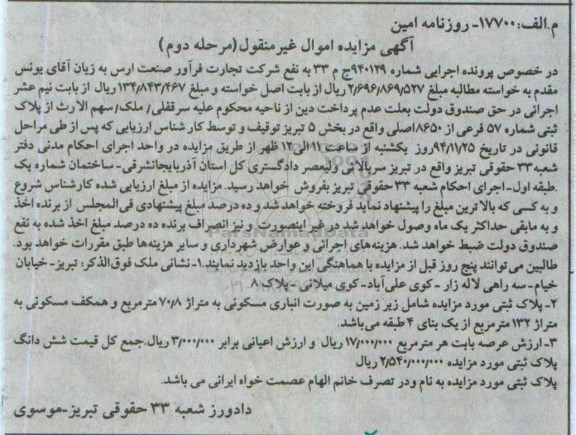 م.الف:۱۷۷۰۰- روزنامه امین
آگهی مزایده اموال غیرمنقول(مرحله دوم)
در خصوص پرونده اجرایی شماره ۹۴۰۱۲۹ج م ۳۳ به نفع شرکت تجارت فرآور صنعت ارس به زیان آقای یونس
مقدم به خواسته مطالبه مبلغ ۲/۶۹۶/۸۶۹/۵۲۷ ریال از بابت اصل خواسته و مبلغ ۱۳۴/۸۴۳/۴۶۷ ریال از بابت نیم عشر
اجرائی در حق صندوق دولت بعلت عدم پرداخت دین از ناحیه محکوم علیه سرقفلی/ ملک/ سهم الارث از پلاک
ثبتی شماره ۵۷ فرعی از ۸۶۵۰اصلی واقع در بخش ۵ تبریز توقیف و توسط کارشناس ارزیابی که پس از طی مراحل
قانونی در تاریخ ۹۴/۱۱/۲۵روز یکشنبه از ساعت ۱۱ الی۱۲ ظهر از طریق مزایده در واحد اجرای احکام مدنی دفتر
شعبه ۳۳ حقوقی تبریز واقع در تبریز سربالائی ولیعصر دادگستری کل استان آذربایجانشرقی- ساختمان شماره یک
.طبقه اول-اجرای احکام شعبه ۳۳ حقوقی تبریز بفروش خواهد رسید. مزایده از مبلغ ارزیابی شده کارشناس شروع
و به کسی که بالاترین مبلغ را پیشنهاد نماید فروخته خواهد شد و ده درصد مبلغ پیشنهادی فی المجلس از برنده اخذ
و به مابقی حداکثر یک ماه وصول خواهد شد در غیر اینصورت و نیز انصراف برنده ده درصد مبلغ اخذ شده به نفع
صندوق دولت ضبط خواهد شد. هزینه‌های اجرائی و عوارض شهرداری و سایر هزینه‌ها طبق مقررات خواهد بود.
طالبین می‌توانند پنج روز قبل از مزایده با هماهنگی این واحد بازدید نمایند.۱-نشانی ملک فوق‌الذکر: تبریز- خیابان
خیام-سه راهی لاله زار - کوی علی‌آباد- کوی میلانی -پلاک ۸
۲- پلاک ثبتی مورد مزایده شامل زیر زمین به صورت انباری مسکونی به متراژ ۷۰/۸ مترمربع و همکف مسکونی به
متراژ ۱۳۲ مترمربع از یک بنای ۴ طبقه می‌باشد.
۳- ارزش عرصه بابت هر مترمربع ۱۷/۰۰۰/۰۰۰ ریال و ارزش اعیانی برابر ۳/۰۰۰/۰۰۰ ریال.جمع کل قیمت شش دانگ
پلاک ثبتی مورد مزایده ۲/۵۴۰/۰۰۰/۰۰۰ ریال
پلاک ثبتی مورد مزایده به نام ودر تصرف خانم الهام عصمت خواه ایرانی می باشد.
دادورز شعبه ۳۳ حقوقی تبریز-موسوی